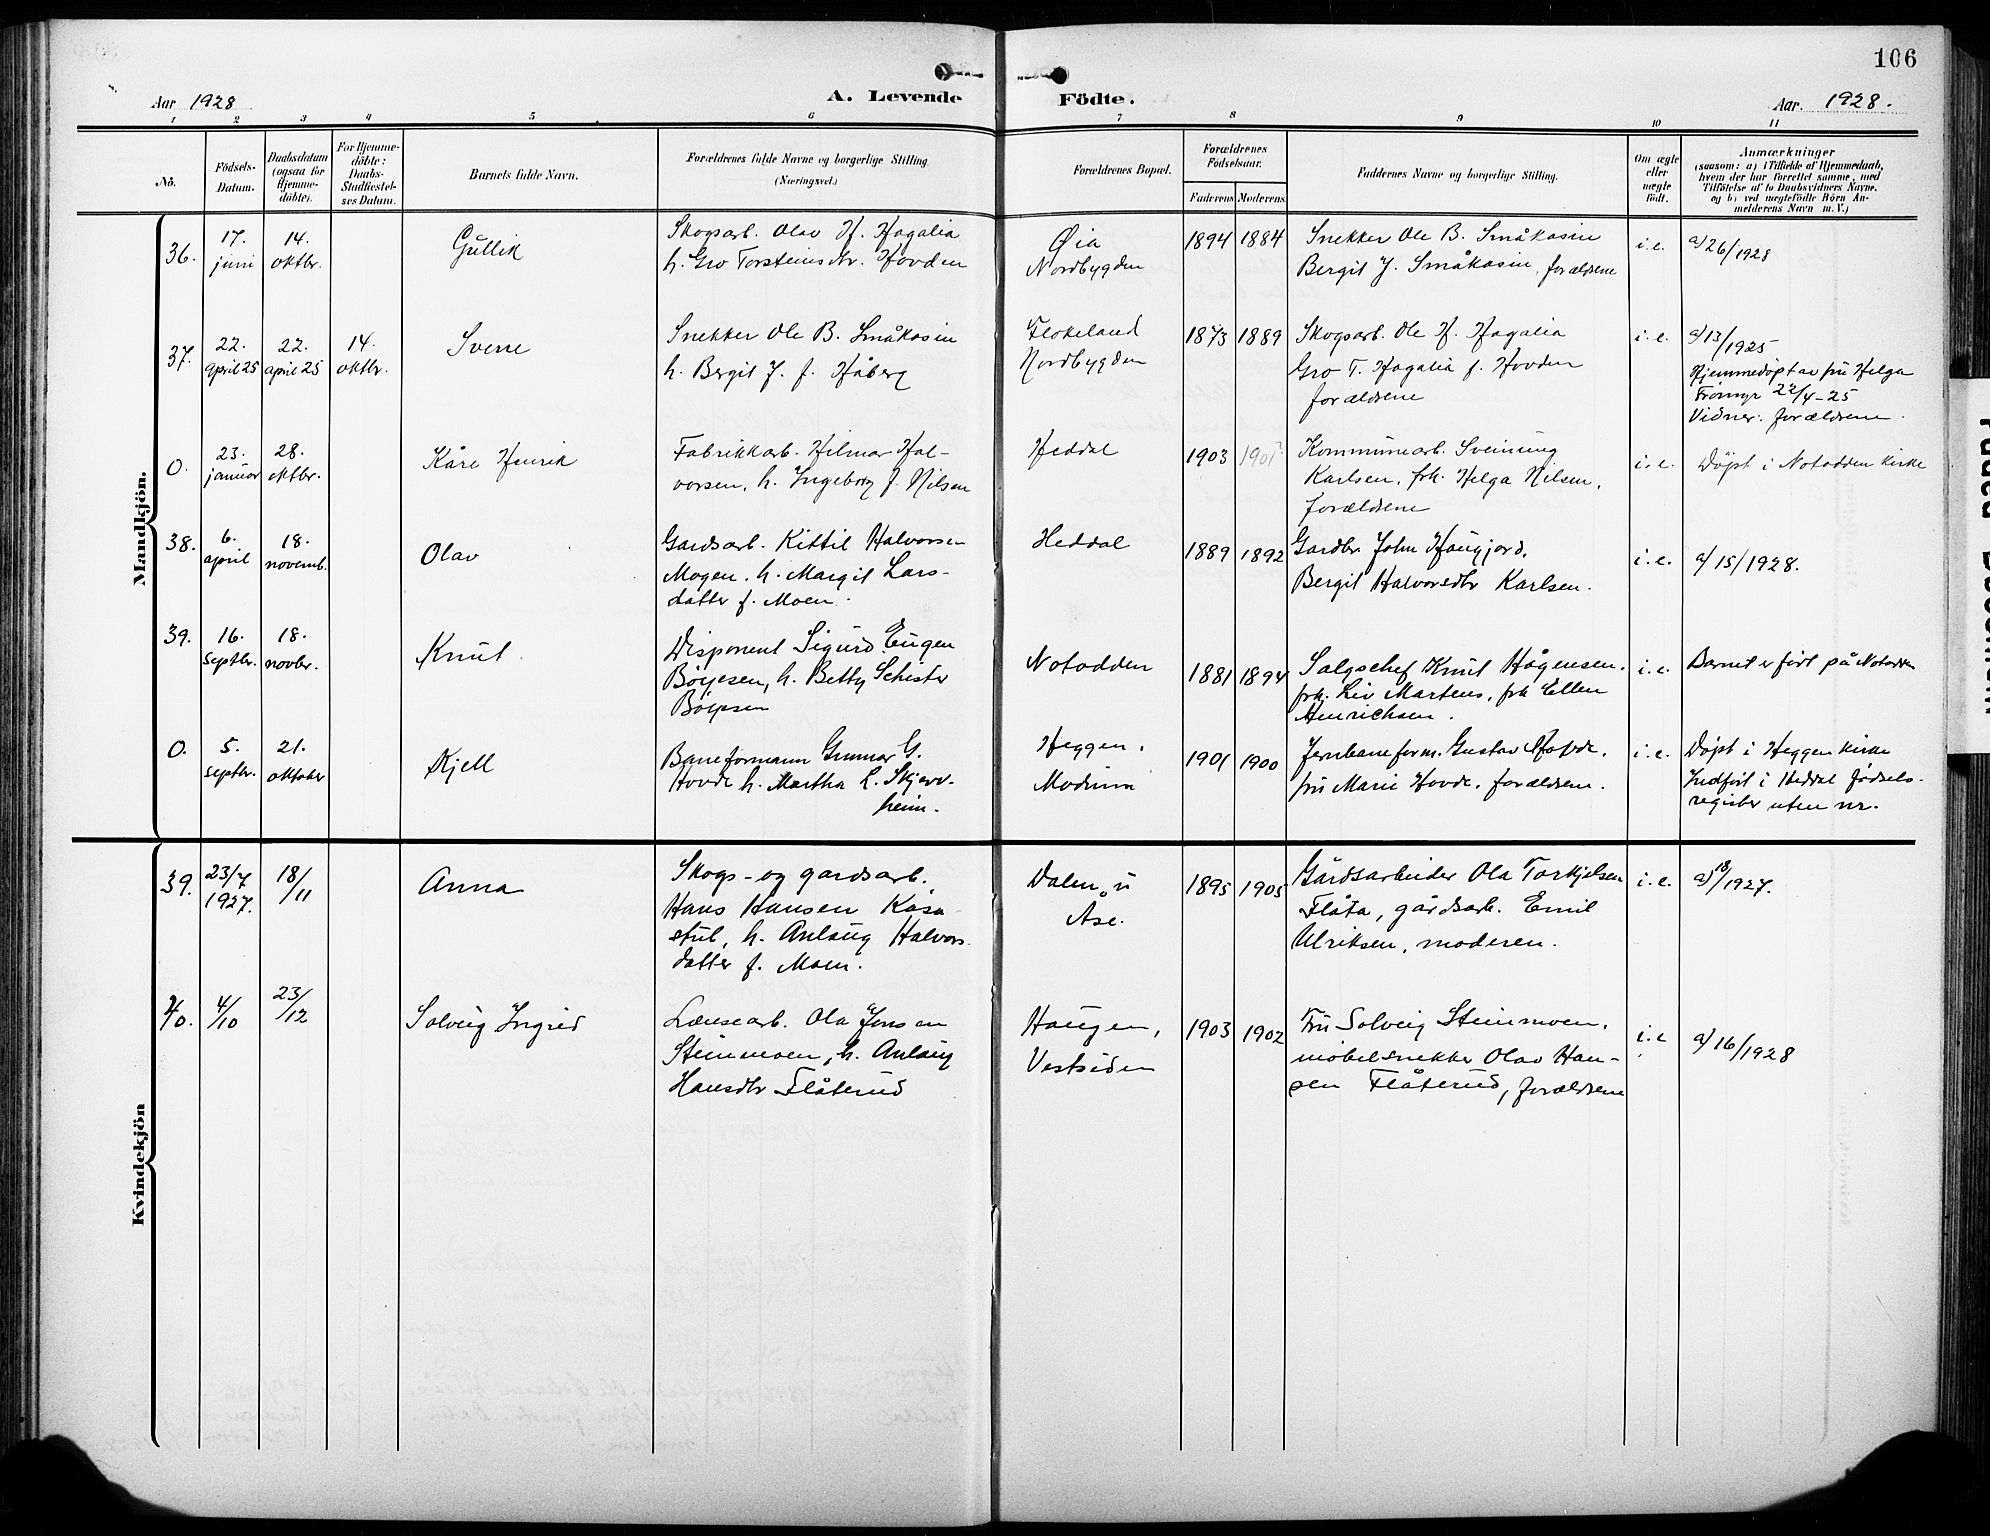 106
Aar 1928
A. Levende
Födte.
Aar. 1928.
1 2 3 4 5 6 7 8 9 10 11
No.
Födsels-
Datum.
Daabsdatum
(ogsaa for
Hjemme-
döbte).
For Hjemme-
döbte:
Daabs-
Stadfæstel-
ses Datum.
Barnets fulde Navn.
Forældrenes fulde Navne og borgerlige Stilling.
(Næringsvei.)
Forældrenes Bopæl.
Forældrenes
Födselsaar.
Faderens
Moderens
Faddernes Navne og borgerlige Stilling.
Om ægte
eller
uægte
födt.
Anmærkninger
(saasom: a) i Tilfælde af Hjemmedaab,
hvem der har forrettet samme, med
Tilföielse af to Daabsvidners Navne,
og b) ved uægtefödte Börn An-
melderens Navn m. V.)
Mandkjön.
36.
17.
juni
14.
oktbr.
Gullik
Skogsarb. Olav H. Hagalia
h. Gro Torsteinsdtr. Hovden
Øia
Nordbygden
1894
1884
Snekker Ole B. Småkasin
Bergit J. Småkasin, forældrene
i.e.
a/26/1928
37.
22.
april 25
22.
april 25
14.
oktbr.
Sverre
Snekker Ole B. Småkasin
h. Bergit J. f. Håberg
Flokeland
Nordbygden
1873
1889
Skogsarb. Ole H. Hagalia
Gro T. Hagalia f. Hovden
forældrene
i.e.
a/13/1925
Hjemmedøpt av fru Helga
22/4-25
Vidner: forældrene.
0.
23.
januar
28.
oktbr.
Kåre Henrik
Fabrikkarb. Hilmar Hal-
vorsen, h. Ingeborg f. Nilsen
Heddal
1903
1901
Kommunearb. Sveinung
Karlsen, frk. Helga Nilsen,
forældrene
i.e.
Døpt i Notodden kirke
38.
6.
april
18.
novemb.
Olav
Gardsarb. Kittil Halvorsen
Mogen. h. Margit Lars-
datter f. Moen.
Heddal
1889
1892
Gardbr. John Haugjord,
Bergit Halvorsdtr Karlsen.
i.e.
a/15/1928.
39.
16.
septbr.
18.
novbr.
Knut
Disponent Sigurd Eugen
Böyesen, h. Betty Schister
Böyesen
Notodden
1881
1894
Salgschef Knut Hågensen,
frk. Liv Martens, frk Ellen
Hinrichsen.
i.e.
Barnet er født på Notodden
0.
5.
septbr.
21.
oktober
Kjell
Baneformann Gunnar G.
Hovde h. Martha L. Skjerv-
heim.
Heggen,
Modum
1901
1900
Jernbaneform. Gustav Hovde,
fru Marie Hovde, forældrene.
i.e.
Døpt i Heggen kirke
Indført i Heddal fødsels-
register uten nr.
Kvindekjön
39.
23/7
1927.
18/
11
Anna
Skogs- og gardsarb.
Hans Hansen Kåsa-
stul, h. Anlaug Halvors-
datter f. Moen.
Dalen u
Åse.
1895
1905
Gårdsarbeider Ola Torkjelsen
Flåta, gårdsarb. Emil
Ulriksen, moderen.
i.e.
a)18/1927.
40.
4/
10
23/
12
Solveig Ingrid
Lænsearb. Ola Jonsen
Steinmoen, h. Anlaug
Hansdtr Flåterud
Haugen,
Vestsiden
1903
1902
Fru Solveig Steinmoen,
møbelsnekker Olav Han-
sen Flåterud, forældrene
i.e
a)16/1928